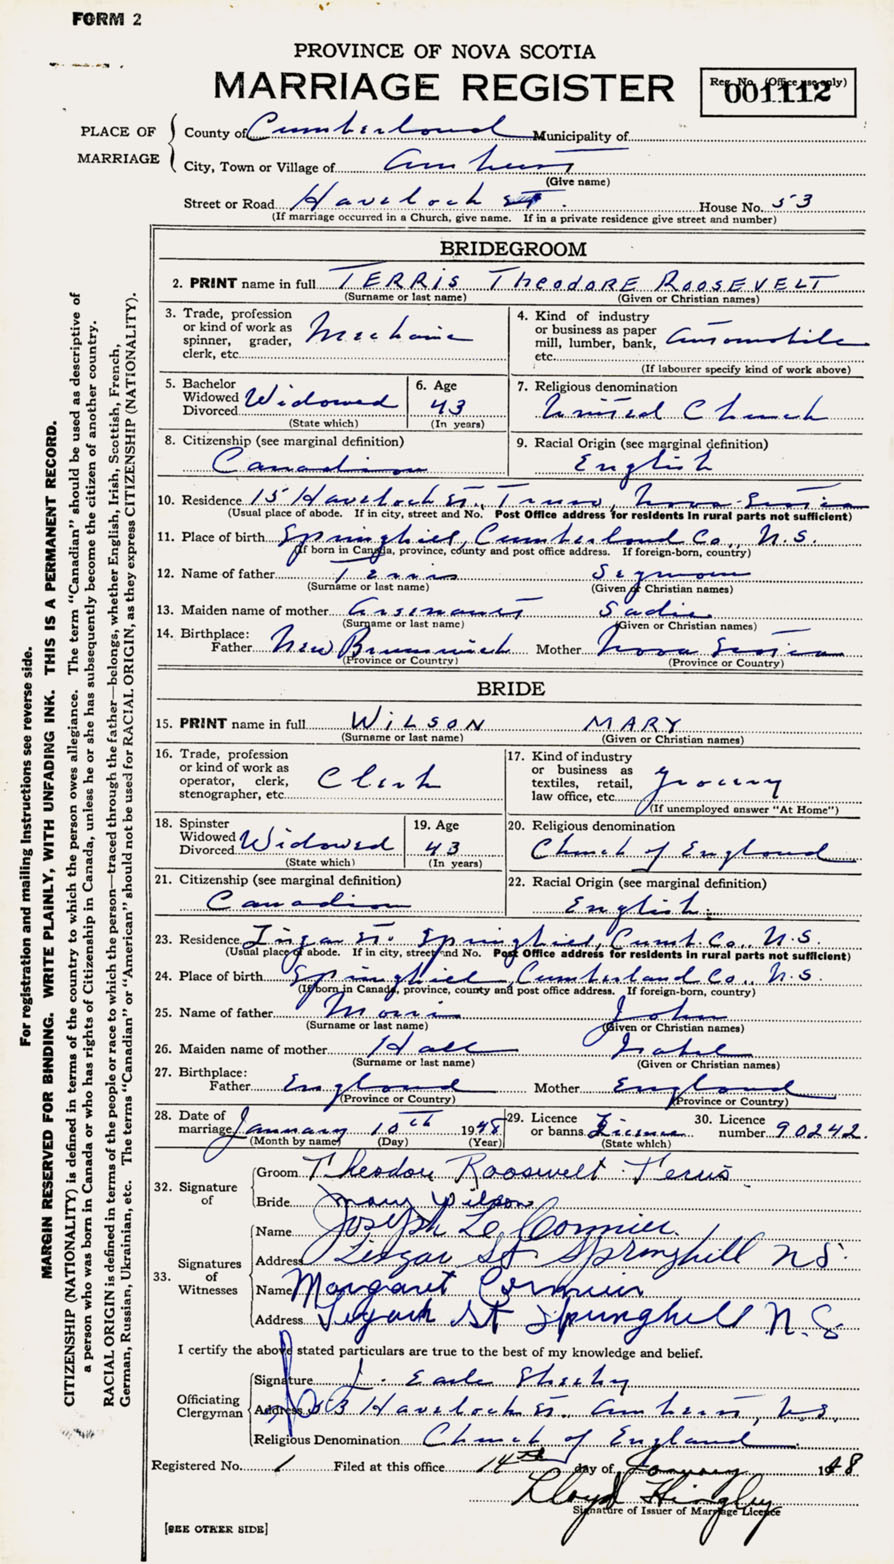 FORM 2
PROVINCE OF NOVA SCOTIA
MARRIAGE REGISTER
Reg. No. (Office use only)
001112
PLACE OF MARRIAGE
County of Cumberland Municipality of
City, Town or Village of Amherst
(Give name)
Street or Road Havelock St. House No. 53
(If marriage occurred in a Church, give name. If in a private residence give street and number)
BRIDEGROOM
2. PRINT name in full TERRIS THEODORE ROOSEVELT
(Surname or last name) (Given or Christian names)
3. Trade, profession or kind of work as spinner, grader, clerk, etc. Mechanic
4. Kind of industry or business as paper mill, lumber, bank, etc. Automobile
(If labourer specify kind of work above)
5. Bachelor Widowed Divorced Widowed
(State which)
6. Age 43
(In years)
7. Religious denomination United Church
8. Citizenship (see marginal definition) Canadian
9. Racial Origin (see marginal definition) English
10. Residence 15 Havelock St., Truro, Nova Scotia
(Usual place of abode. If in city, street and No. Post Office address for residents in rural parts not sufficient)
11. Place of birth Springhill, Cumberland Co., N.S.
(If born in Canada, province, county and post office address. If foreign-born, country)
12. Name of father Terris Seymour
(Surname or last name) (Given or Christian names)
13. Maiden name of mother Arsenault Sadie
(Surname or last name) (Given or Christian names)
14. Birthplace: Father New Brunswick Mother Nova Scotia
(Province or Country) (Province or Country)
BRIDE
15. PRINT name in full WILSON MARY
(Surname or last name) (Given or Christian names)
16. Trade, profession or kind of work as operator, clerk, stenographer, etc. Clerk
17. Kind of industry or business as textiles, retail, law office, etc. Grocery
(If unemployed answer "At Home")
18. Spinster Widowed Divorced Widowed
(State which)
19. Age 43
(In years)
20. Religious denomination Church of England
21. Citizenship (see marginal definition) Canadian
22. Racial Origin (see marginal definition) English.
23. Residence St. Springhill, Cumb. Co., N.S.
(Usual place of abode. If in city, street and No. Post Office address for residents in rural parts not sufficient)
24. Place of birth Springhill, Cumberland Co., N.S.
(If born in Canada, province, county and post office address. If foreign-born, country)
25. Name of father Morris John
(Surname or last name) (Given or Christian names)
26. Maiden name of mother Hall Isabel
(Surname or last name) (Given or Christian names)
27. Birthplace: Father England Mother England
(Province or Country) (Province or Country)
28. Date of marriage January 10th 1948
(Month by name) (Day) (Year)
29. Licence or banns License
(State which)
30. Licence number 90242.
32. Signature of
Groom Theodore Roosevelt Terris
Bride Mary Wilson
33. Signatures of Witnesses
Name Joseph L Cormier.
Address St Springhill N S.
Name Margaret Cormier
Address St Springhill N. S
I certify the above stated particulars are true to the best of my knowledge and belief.
Officiating Clergyman
Signature J. Earle
Address 53 Havelock St. Amherst, N.S.
Religious Denomination Church of England
Registered No. 1 Filed at this office 14th day of January 1948
Lloyd Hingley
Signature of Issuer of Marriage Licence
[SEE OTHER SIDE]
For registration and mailing instructions see reverse side.
MARGIN RESERVED FOR BINDING. WRITE PLAINLY, WITH UNFADING INK. THIS IS A PERMANENT RECORD.
CITIZENSHIP (NATIONALITY) is defined in terms of the country to which the person owes allegiance. The term "Canadian" should be used as descriptive of
a person who was born in Canada or who has rights of Citizenship in Canada, unless he or she has subsequently become the citizen of another country.
RACIAL ORIGIN is defined in terms of the people or race to which the person—traced through the father—belongs, whether English, Irish, Scottish, French,
German, Russian, Ukrainian, etc. The terms "Canadian" or "American" should not be used for RACIAL ORIGIN, as they express CITIZENSHIP (NATIONALITY).